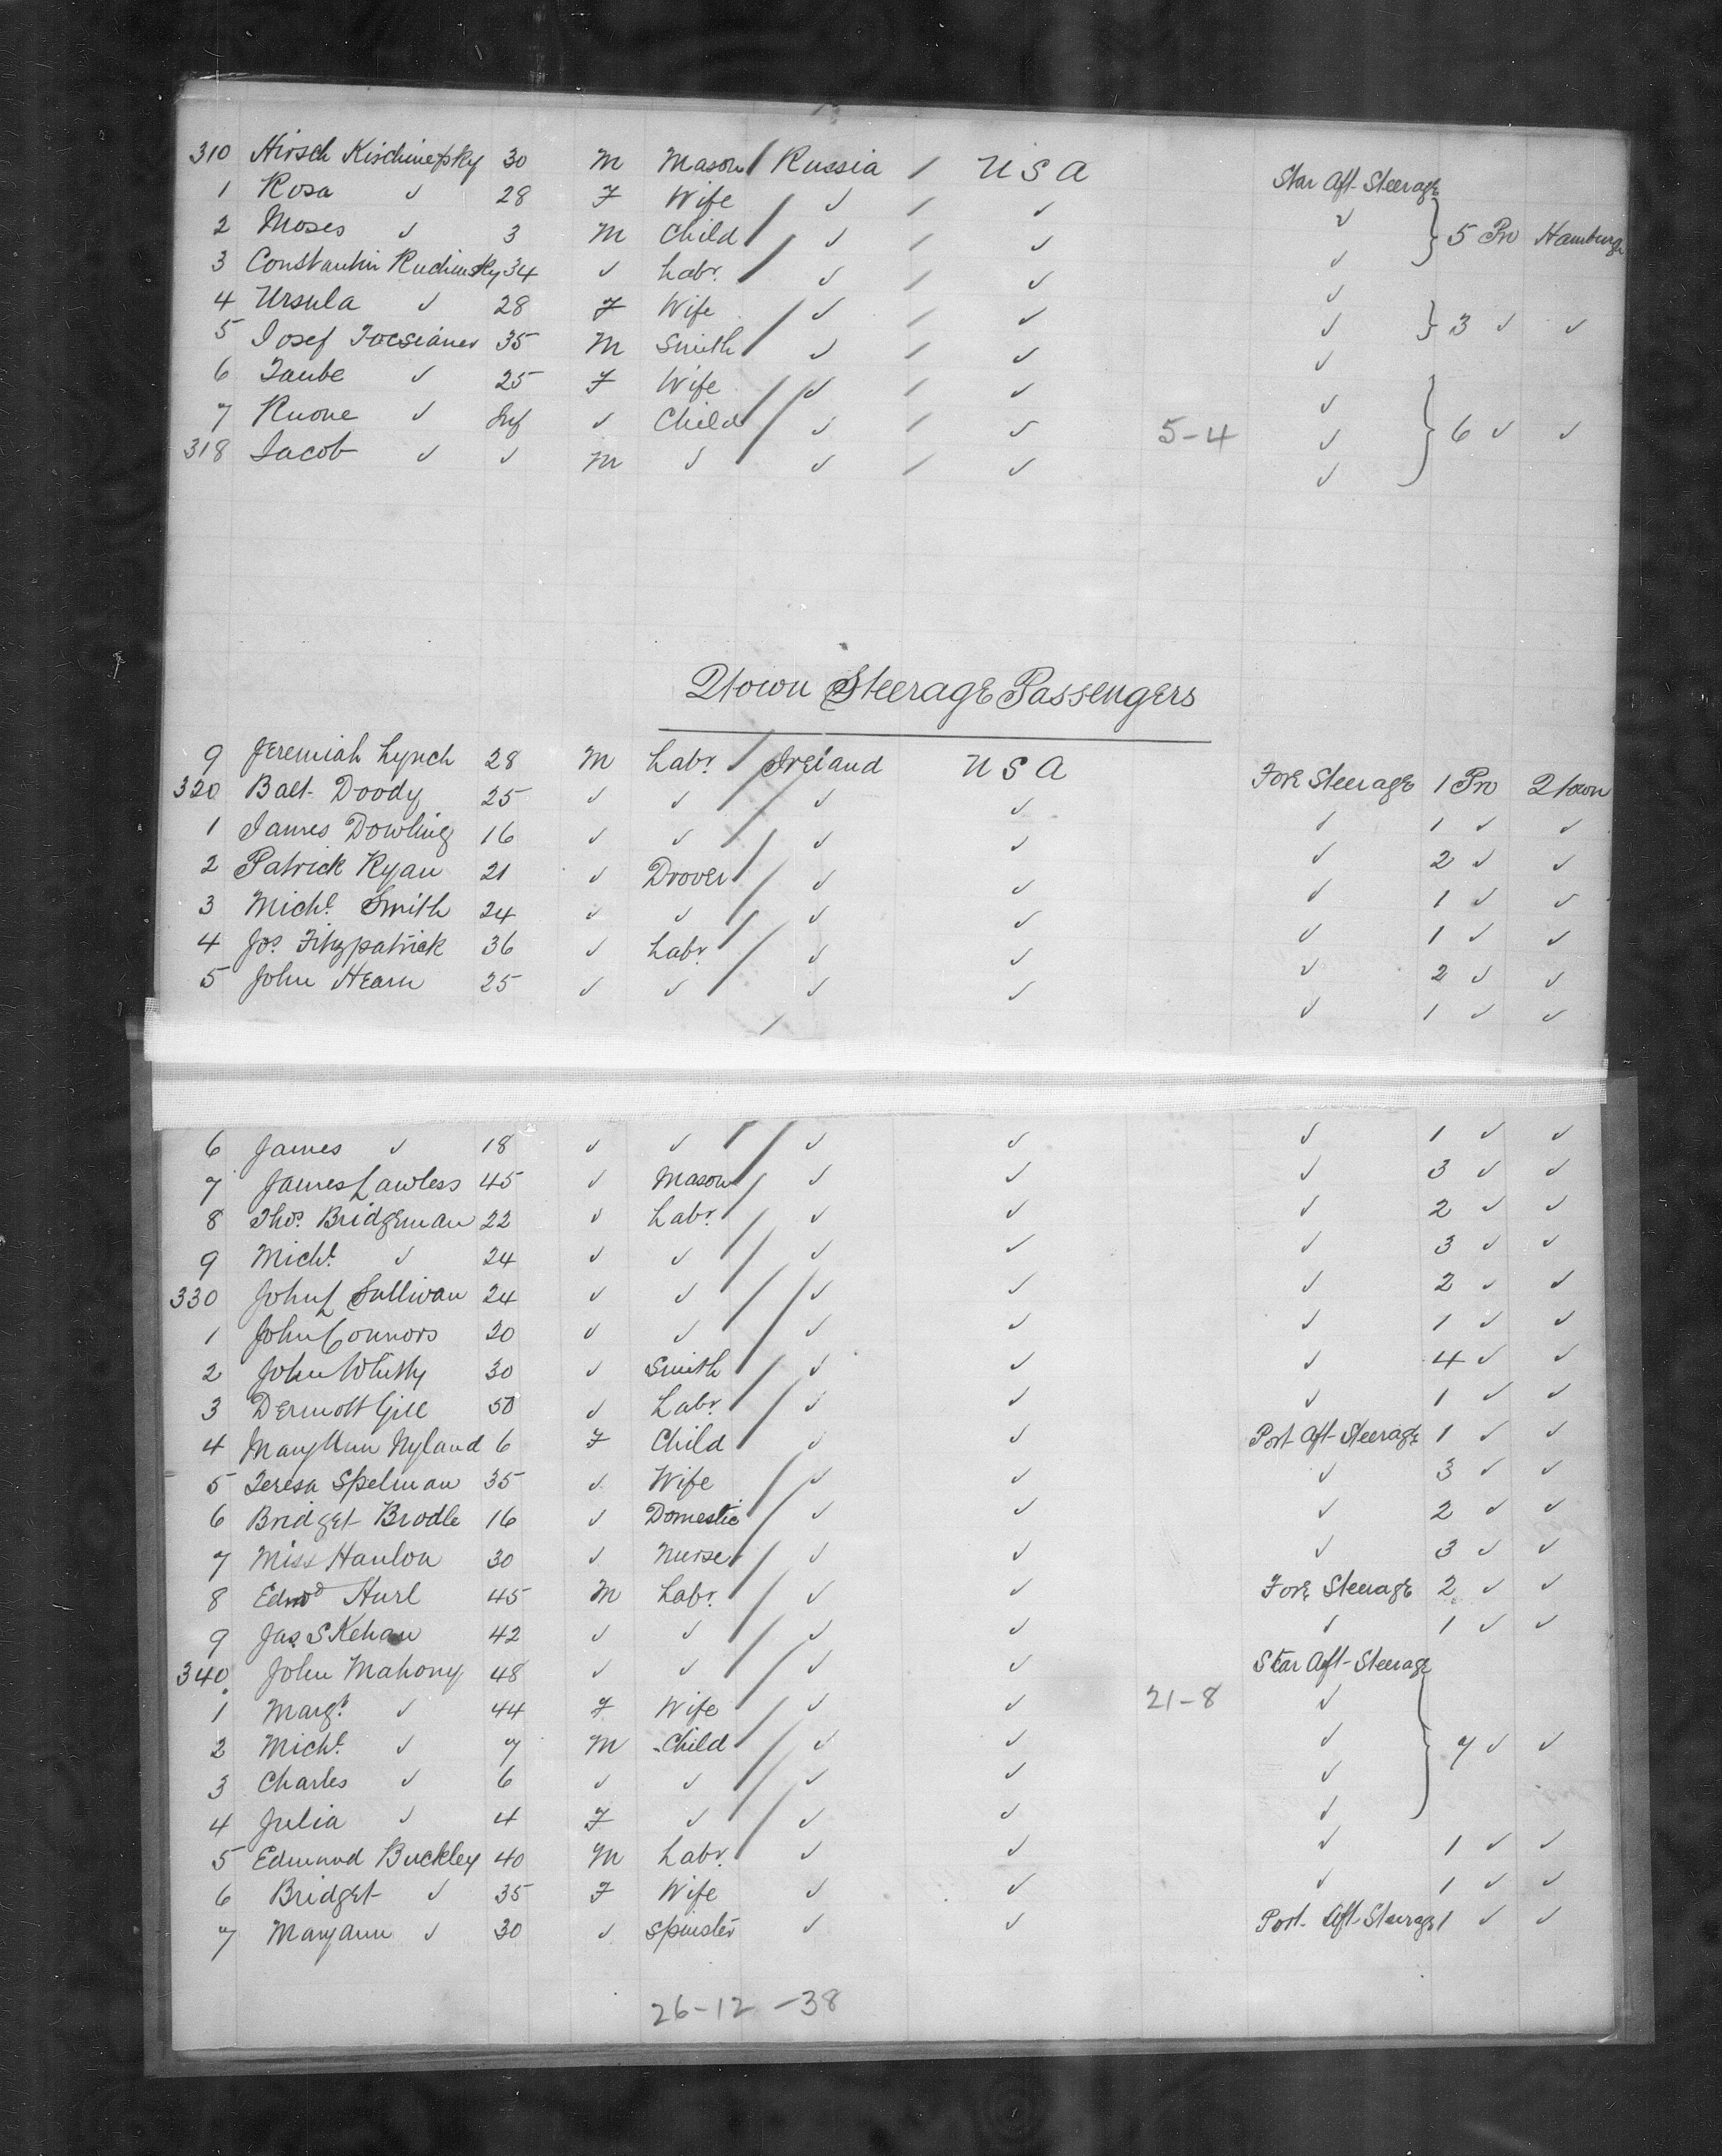 310 Hirsch Kischinefsky 30 M Mason / Russia / U S A Star Aft-Steerage
1 Rosa ✓ 28 F Wife / ✓ / ✓ ✓
2 Moses ✓ 3 M Child / ✓ / ✓ ✓ } 5 Pro Hamburg
3 Constantin Rudinsky 34 ✓ Labr. / ✓ / ✓ ✓
4 Ursula ✓ 28 F Wife / ✓ / ✓ ✓ } 3 ✓ ✓
5 Josef 35 M Smith / ✓ / ✓ ✓
6 Taube ✓ 25 F Wife / ✓ / ✓ ✓
7 Ruone ✓ Inf ✓ Child / ✓ / ✓ 5-4 ✓ } 6 ✓ ✓
318 Jacob ✓ ✓ M ✓ / ✓ / ✓ ✓
Qtown Steerage Passengers
9 Jeremiah Lynch 28 M Labr. / Ireland U S A Fore Steerage 1 Pro Qtown
320 Balt- Doody 25 ✓ ✓ / ✓ ✓ ✓ 1 ✓ ✓
1 James Dowling 16 ✓ ✓ / ✓ ✓ ✓ 2 ✓ ✓
2 Patrick Ryan 21 ✓ Drover / ✓ ✓ ✓ 1 ✓ ✓
3 Michl. Smith 24 ✓ ✓ / ✓ ✓ ✓ 1 ✓ ✓
4 Jos. Fitzpatrick 36 ✓ Labr. / ✓ ✓ ✓ 2 ✓ ✓
5 John Hearn 25 ✓ ✓ / ✓ ✓ ✓ 1 ✓ ✓
6 James ✓ 18 ✓ ✓ / ✓ ✓ ✓ 1 ✓ ✓
7 James Lawless 45 ✓ Mason / ✓ ✓ ✓ 3 ✓ ✓
8 Thos. Bridgeman 22 ✓ Labr. / ✓ ✓ ✓ 2 ✓ ✓
9 Michl. ✓ 24 ✓ ✓ / ✓ ✓ ✓ 3 ✓ ✓
330 John L Sullivan 24 ✓ ✓ / ✓ ✓ ✓ 2 ✓ ✓
1 John Connors 20 ✓ ✓ / ✓ ✓ ✓ 1 ✓ ✓
2 John Whitty 30 ✓ Smith / ✓ ✓ ✓ 4 ✓ ✓
3 Dermott Gill 50 ✓ Labr. / ✓ ✓ ✓ 1 ✓ ✓
4 Mary Ann Nyland 6 F Child / ✓ ✓ Port-Aft-Steerage 1 ✓ ✓
5 Teresa Spelman 35 ✓ Wife / ✓ ✓ ✓ 3 ✓ ✓
6 Bridget Brodle 16 ✓ Domestic / ✓ ✓ ✓ 2 ✓ ✓
7 Miss Hanlon 30 ✓ Nurse / ✓ ✓ ✓ 3 ✓ ✓
8 Edwd Hurl 45 M Labr. / ✓ ✓ Fore Steerage 2 ✓ ✓
9 Jas. Skehan 42 ✓ ✓ / ✓ ✓ ✓ 1 ✓ ✓
340 John Mahony 48 ✓ ✓ / ✓ ✓ Star Aft-Steerage
1 Margt. ✓ 44 F Wife / ✓ ✓ 21-8 ✓
2 Michl. ✓ 7 M Child / ✓ ✓ ✓ } 7 ✓ ✓
3 Charles ✓ 6 ✓ ✓ / ✓ ✓ ✓
4 Julia ✓ 4 F ✓ / ✓ ✓ ✓
5 Edmund Buckley 40 M Labr. / ✓ ✓ ✓ 1 ✓ ✓
6 Bridget ✓ 35 F Wife ✓ ✓ ✓ 1 ✓ ✓
7 Mary Ann ✓ 30 ✓ Spinster ✓ ✓ Port-Aft-Steerage 1 ✓ ✓
26-12-38